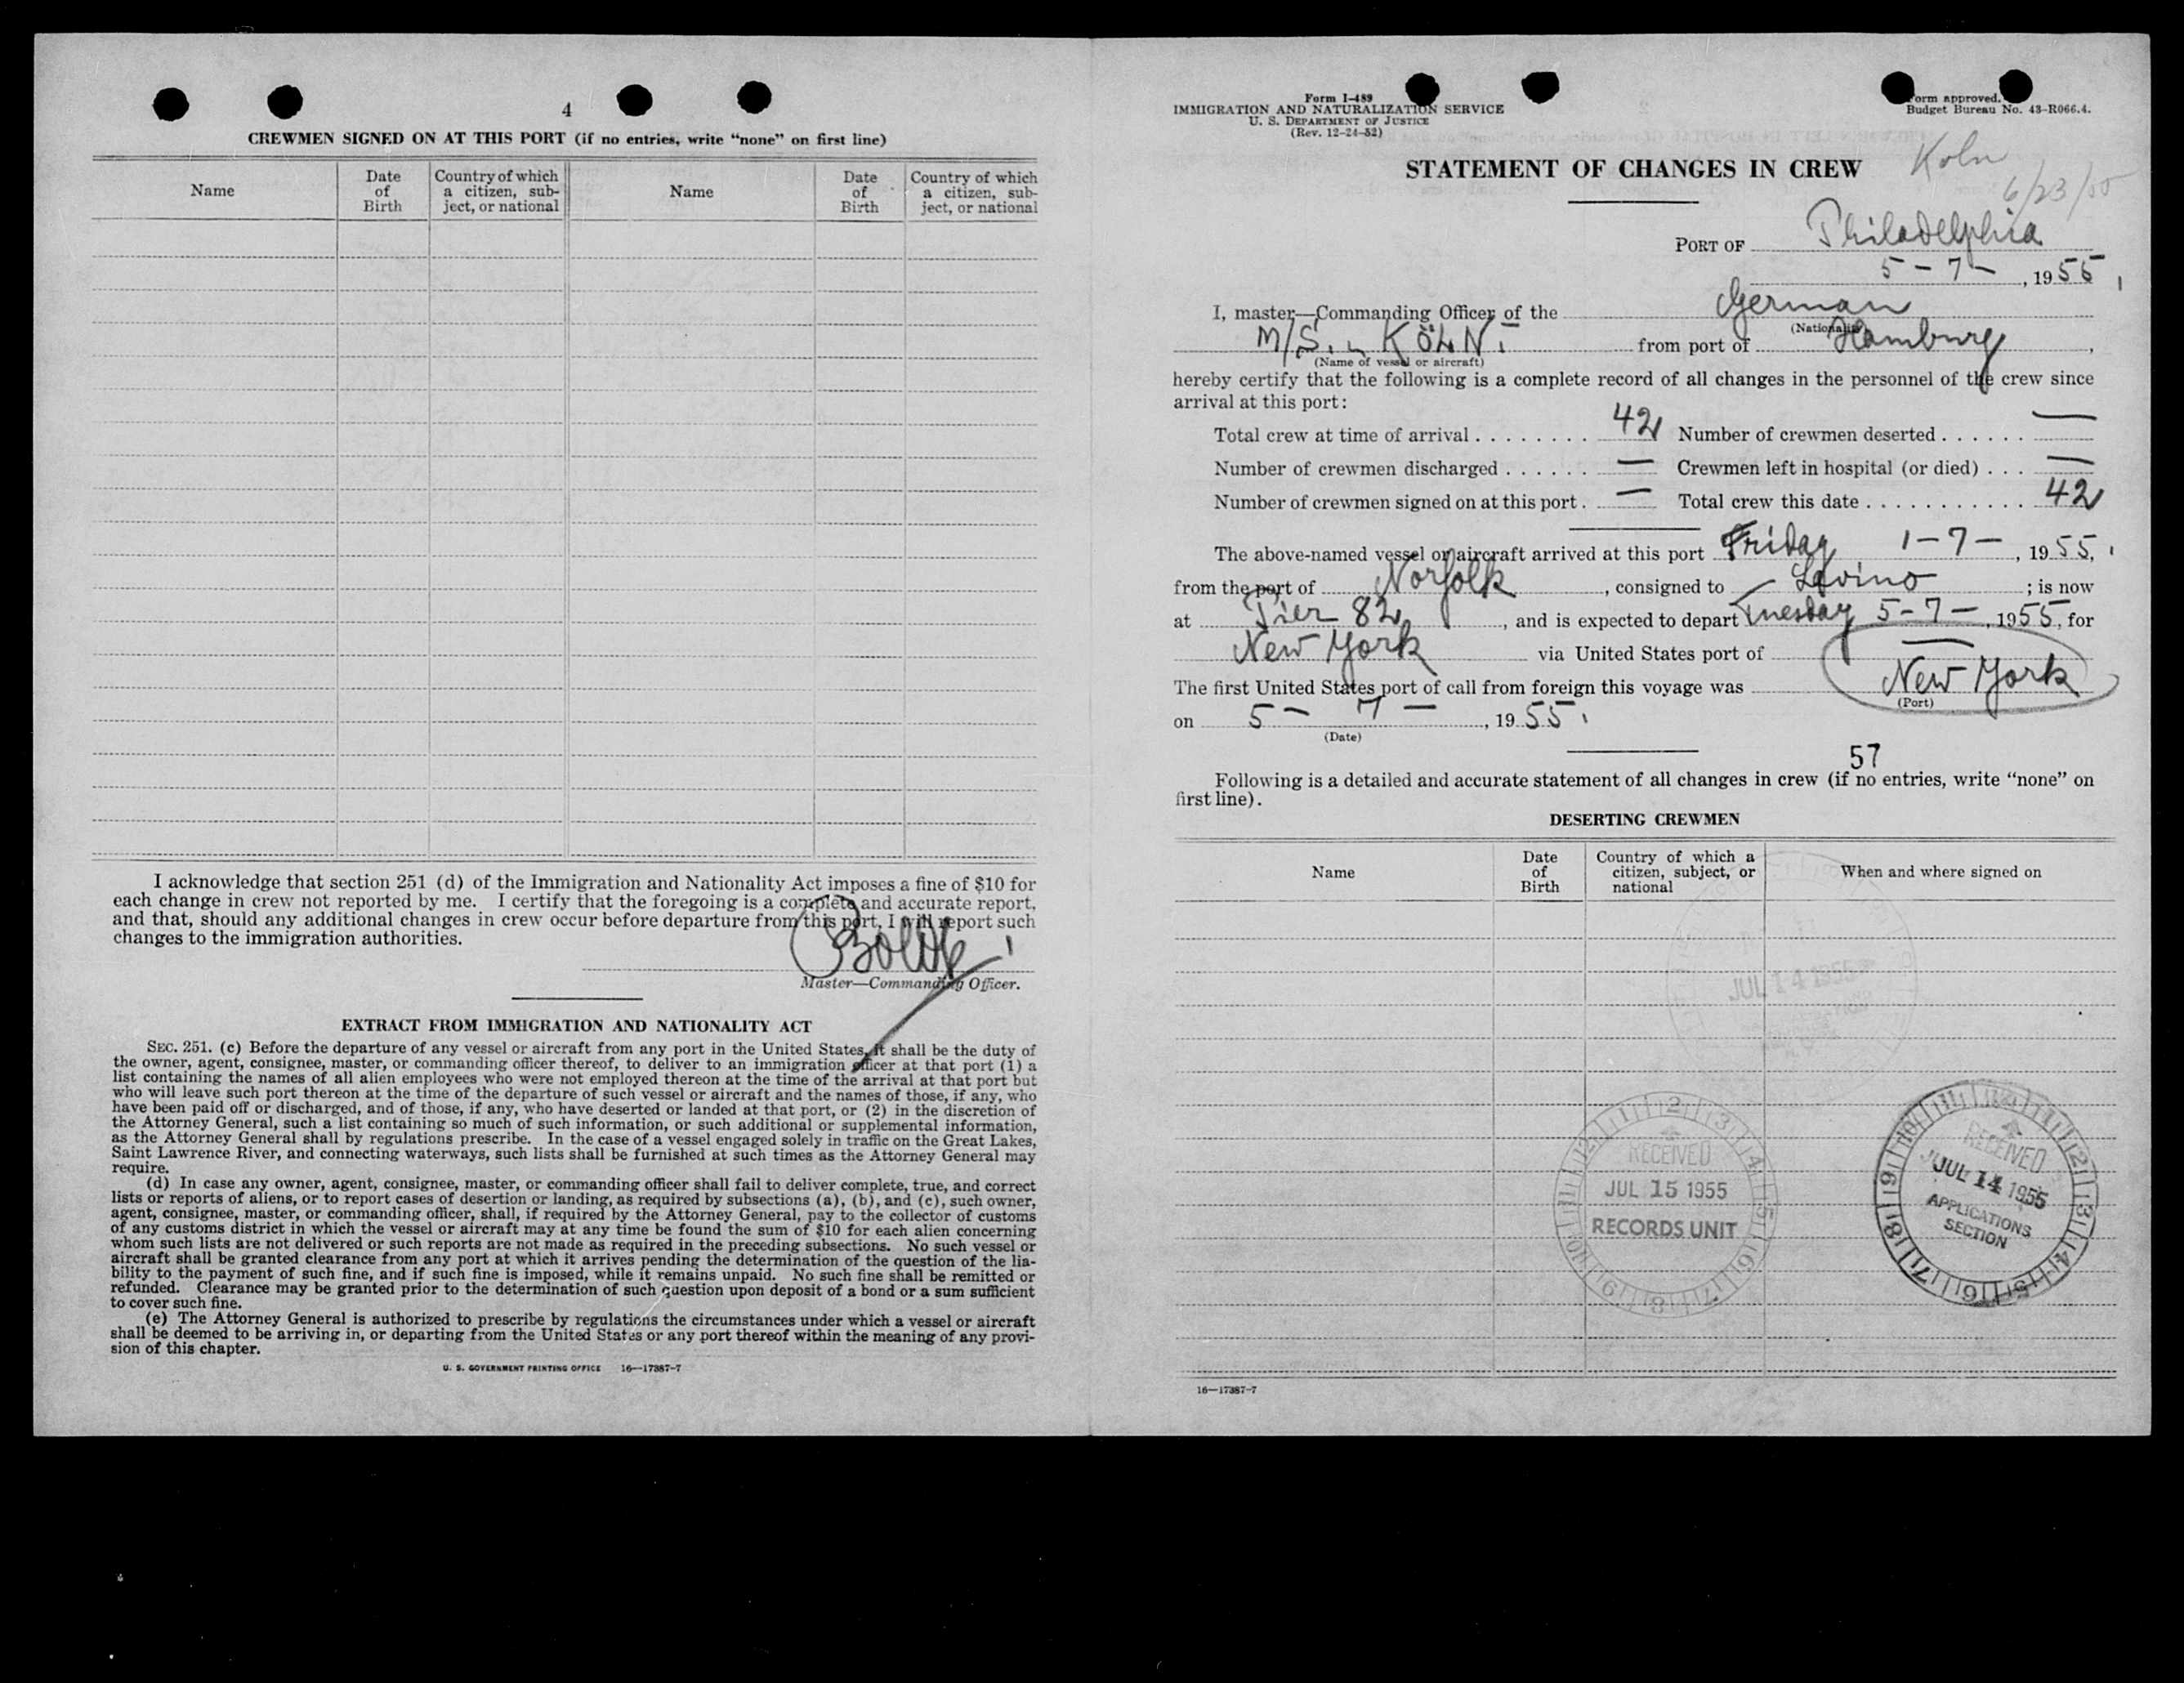 4
CREWMEN SIGNED ON AT THIS PORT (if no entries, write “none” on first line)
Name
Date of Birth
Country of which a citizen, subject, or national
Name
Date of Birth
Country of which a citizen, subject, or national
I acknowledge that section 251 (d) of the Immigration and Nationality Act imposes a fine of $10 for
each change in crew not reported by me. I certify that the foregoing is a complete and accurate report,
and that, should any additional changes in crew occur before departure from this port, I will report such
changes to the immigration authorities.
Master—Commanding Officer.
EXTRACT FROM IMMIGRATION AND NATIONALITY ACT
SEC. 251. (c) Before the departure of any vessel or aircraft from any port in the United States, it shall be the duty of
the owner, agent, consignee, master, or commanding officer thereof, to deliver to an immigration officer at that port (1) a
list containing the names of all alien employees who were not employed thereon at the time of the arrival at that port but
who will leave such port thereon at the time of the departure of such vessel or aircraft and the names of those, if any, who
have been paid off or discharged, and of those, if any, who have deserted or landed at that port, or (2) in the discretion of
the Attorney General, such a list containing so much of such information, or such additional or supplemental information,
as the Attorney General shall by regulations prescribe. In the case of a vessel engaged solely in traffic on the Great Lakes,
Saint Lawrence River, and connecting waterways, such lists shall be furnished at such times as the Attorney General may
require.
(d) In case any owner, agent, consignee, master, or commanding officer shall fail to deliver complete, true, and correct
lists or reports of aliens, or to report cases of desertion or landing, as required by subsections (a), (b), and (c), such owner,
agent, consignee, master, or commanding officer, shall, if required by the Attorney General, pay to the collector of customs
of any customs district in which the vessel or aircraft may at any time be found the sum of $10 for each alien concerning
whom such lists are not delivered or such reports are not made as required in the preceding subsections. No such vessel or
aircraft shall be granted clearance from any port at which it arrives pending the determination of the question of the lia-
bility to the payment of such fine, and if such fine is imposed, while it remains unpaid. No such fine shall be remitted or
refunded. Clearance may be granted prior to the determination of such question upon deposit of a bond or a sum sufficient
to cover such fine.
(e) The Attorney General is authorized to prescribe by regulations the circumstances under which a vessel or aircraft
shall be deemed to be arriving in, or departing from the United States or any port thereof within the meaning of any provi-
sion of this chapter.
U. S. GOVERNMENT PRINTING OFFICE 16—17387-7
Form I-489
IMMIGRATION AND NATURALIZATION SERVICE
U. S. DEPARTMENT OF JUSTICE
(Rev. 12-24-52)
orm approved.
Budget Bureau No. 43-R066.4.
Koln
6/23/55
STATEMENT OF CHANGES IN CREW
PORT OF Philadelphia
5 - 7 - , 1955.
I, master—Commanding Officer of the German
(Nationality)
M/S. „KÖLN" from port of Hamburg,
(Name of vessel or aircraft)
hereby certify that the following is a complete record of all changes in the personnel of the crew since
arrival at this port:
Total crew at time of arrival 42 Number of crewmen deserted —
Number of crewmen discharged — Crewmen left in hospital (or died) —
Number of crewmen signed on at this port — Total crew this date 42
The above-named vessel or aircraft arrived at this port Friday 1-7-, 1955,
from the port of Norfolk, consigned to Lavino; is now
at Pier 82, and is expected to depart Tuesday 5-7-, 1955, for
New York via United States port of —
The first United States port of call from foreign this voyage was New York
(Port)
on 5 - 7 -, 1955.
(Date)
57
Following is a detailed and accurate statement of all changes in crew (if no entries, write “none” on
first line).
DESERTING CREWMEN
Name
Date of Birth
Country of which a citizen, subject, or national
When and where signed on
JUL 14 1955
RECEIVED
JUL 15 1955
RECORDS UNIT
RECEIVED
JUL 14 1955
APPLICATIONS
SECTION
16—17387-7